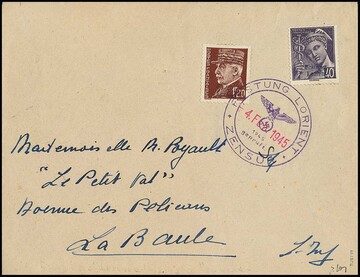 1F20
40
FESTUNG LORIENT
4. FEB 1945
ZENSUR
Mademoiselle M. Poyault
"Le Petit Val"
Avenue des Pelicans
La Baule
L-Inf